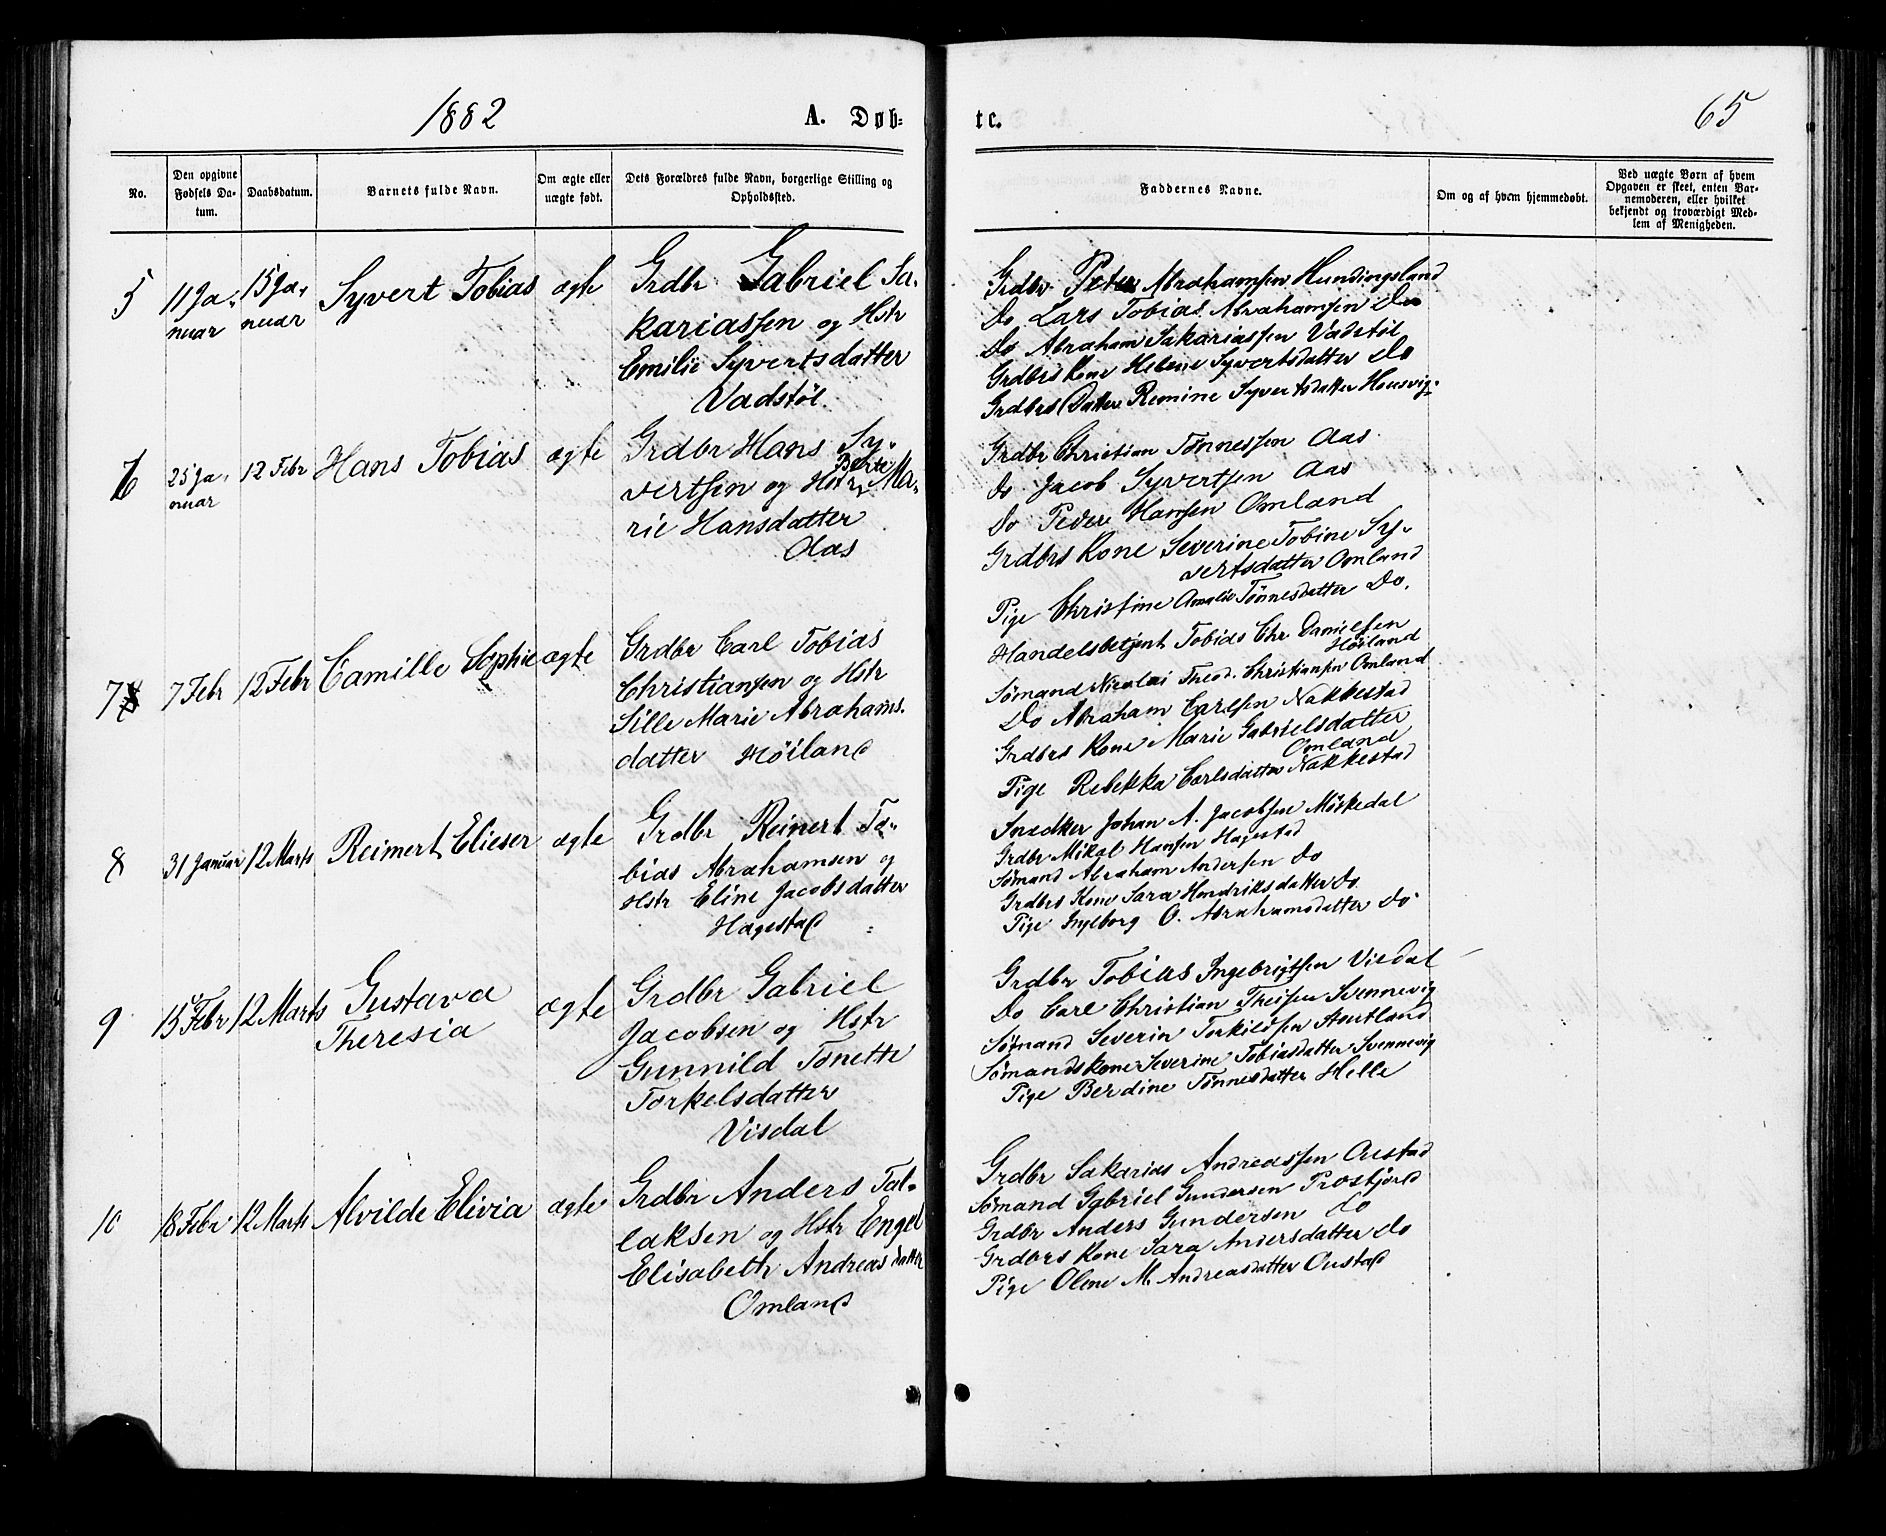 1882
A. Døb-
te.
65
No.
Den opgivne Fødsels Da-tum.
Daabsdatum.
Barnets fulde Navn.
Om ægte eller uægte født.
Dets Forældres fulde Navn, borgerlige Stilling og Opholdssted.
Faddernes Navne.
Om og af hvem hjemmedøbt.
Ved uægte Børn af hvem Opgaven er skeet, enten Bar-nemoderen, eller hvilket bekjendt og troværdigt Med-lem af Menigheden.
5
11 Ja-
nuar
15 Ja-
nuar
Syvert Tobias
ægte
Grdbr Gabriel Sa-
kariassen og Hstr
Emilie Syvertsdatter
Vadstøl
Grdbr Peter Abrahamsen Hundingsland
Do Lars Tobias Abrahamsen Do
Do Abraham Sakariassen Vadstøl
Grdbrs Kone Helene Syvertsdatter Do
Grdbrs Datter Remine Syvertsdatter Housvig
6
25 Ja-
nuar
12 Febr
Hans Tobias
ægte
Grdbr Hans Sy-
vertsen og Hstr Berte Ma-
rie Hansdatter
Aas
Grdbr Christian Tønnessen Aas
Do Jacob Syvertsen Aas
Do Peder Hansen Omland
Grdbrs Kone Severine Tobine Sy-
vertsdatter Omland
Pige Christine Amalie Tønnesdatter Do.
7
7 Febr
12 Febr
Camille Sophie
ægte
Grdbr Carl Tobias
Christiansen og Hstr
Sille Marie Abrahams-
datter Høiland
Handelsbetjent Tobias Chr. Danielsen
Høiland
Sømand Nicolai Theod. Christiansen Omland
Do Abraham Carlsen Nakkestad
Grdbrs Kone Marie Gabrielsdatter
Omland
Pige Rebekka Carlsdatter Nakkestad
8
31 Januar
12 Marts
Reimert Elieser
ægte
Grdbr Reinert To-
bias Abrahamsen og
Hstr Eline Jacobsdatter
Hagestad
Snedker Johan A. Jacobsen Mørkedal
Grdbr Mikal Hansen Hagestad
Sømand Abraham Andersen Do
Grdbrs Kone Sara Hendriksdatter Do
Pige Ingeborg O. Abrahamsdatter Do
9
15 Febr
12 Marts
Gustava
Theresia
ægte
Grdbr Gabriel
Jacobsen og Hstr
Gunnild Tonette
Torkelsdatter
Visdal
Grdbr Tobias Ingebrigtsen Visdal
Do Carl Christian Theisen Svennevig
Sømand Severin Torkildsen Stoutland
Sømandskone Severine Tobiasdatter Svennevig
Pige Berdine Tønnesdatter Helle
10
18 Febr
12 Marts
Alvilde Elivia
ægte
Grdbr Anders Tal-
laksen og Hstr Engel
Elisabeth Andreasdatter
Omland
Grdbr Sakarias Andreassen Oustad
Sømand Gabriel Gundersen Prostjord
Grdbr Anders Gundersen Do
Grdbrs Kone Sara Andersdatter Do
Pige Olene M. Andreasdatter Oustad